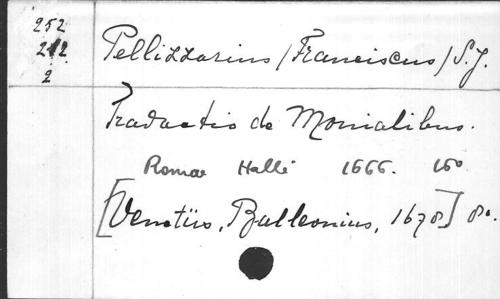 252
212
2
Pellizzarius (Franciscus) S.J.
Tradactio de Monialibus.
Romae Hallé 1666. 16º
[Venetiis, Balleonius, 1678] 8º.